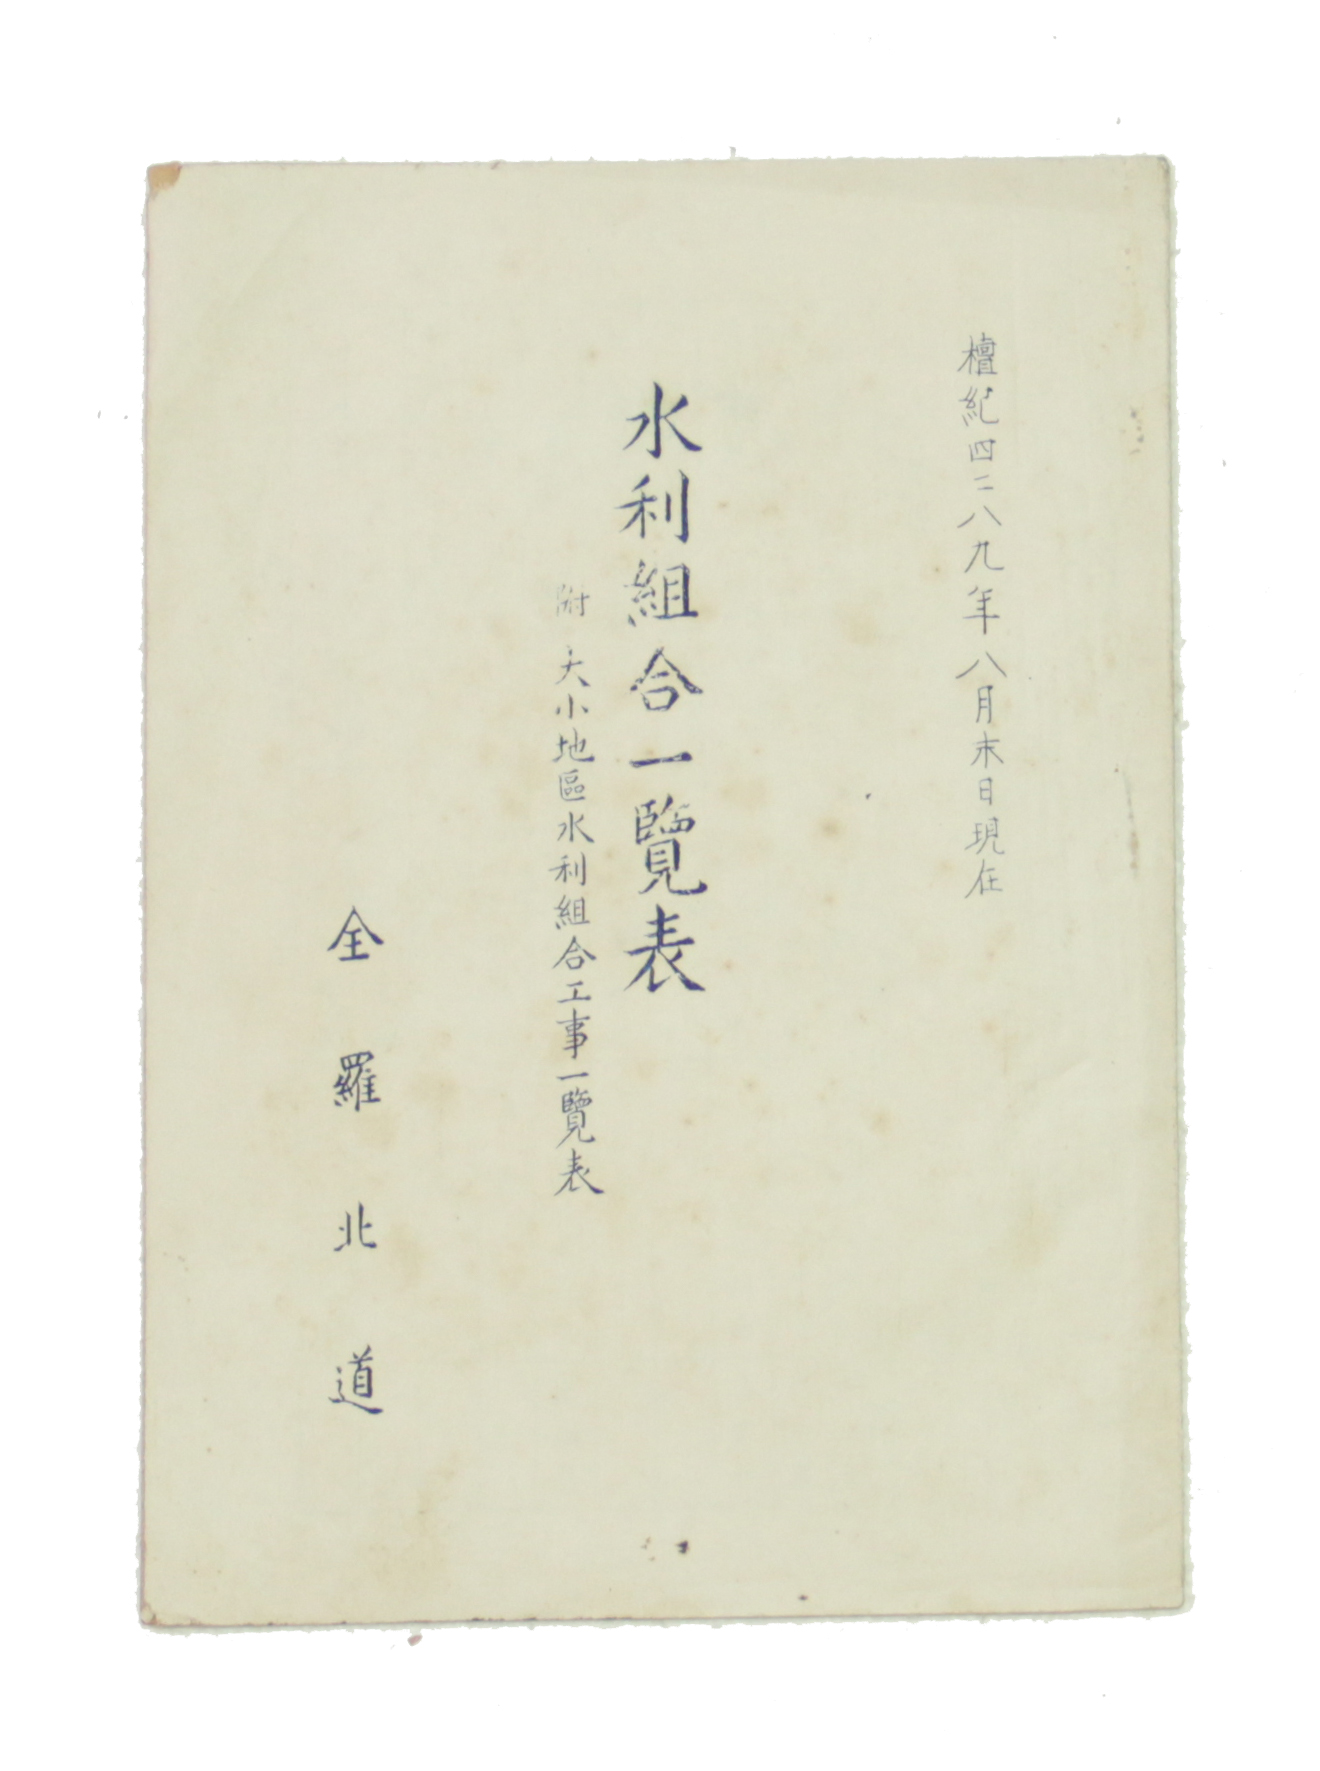 檀紀四二八九年八月末日現在
水利組合一覽表
附 大小地區水利組合工事一覽表
全羅北道